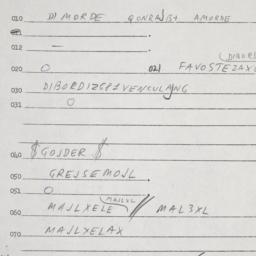 010 DIMORDE QONRAJBI AMORDE
012 -
020 O 021 FAVOSTEZAX
030 DIBORDIZGPIVENCULAJNG
031 O
040 $ GOJDER $
050 GREJSEMOJL
051 O
MAJLXL
060 MAJLXELE // MAL3XL
070 MAJLXELAX